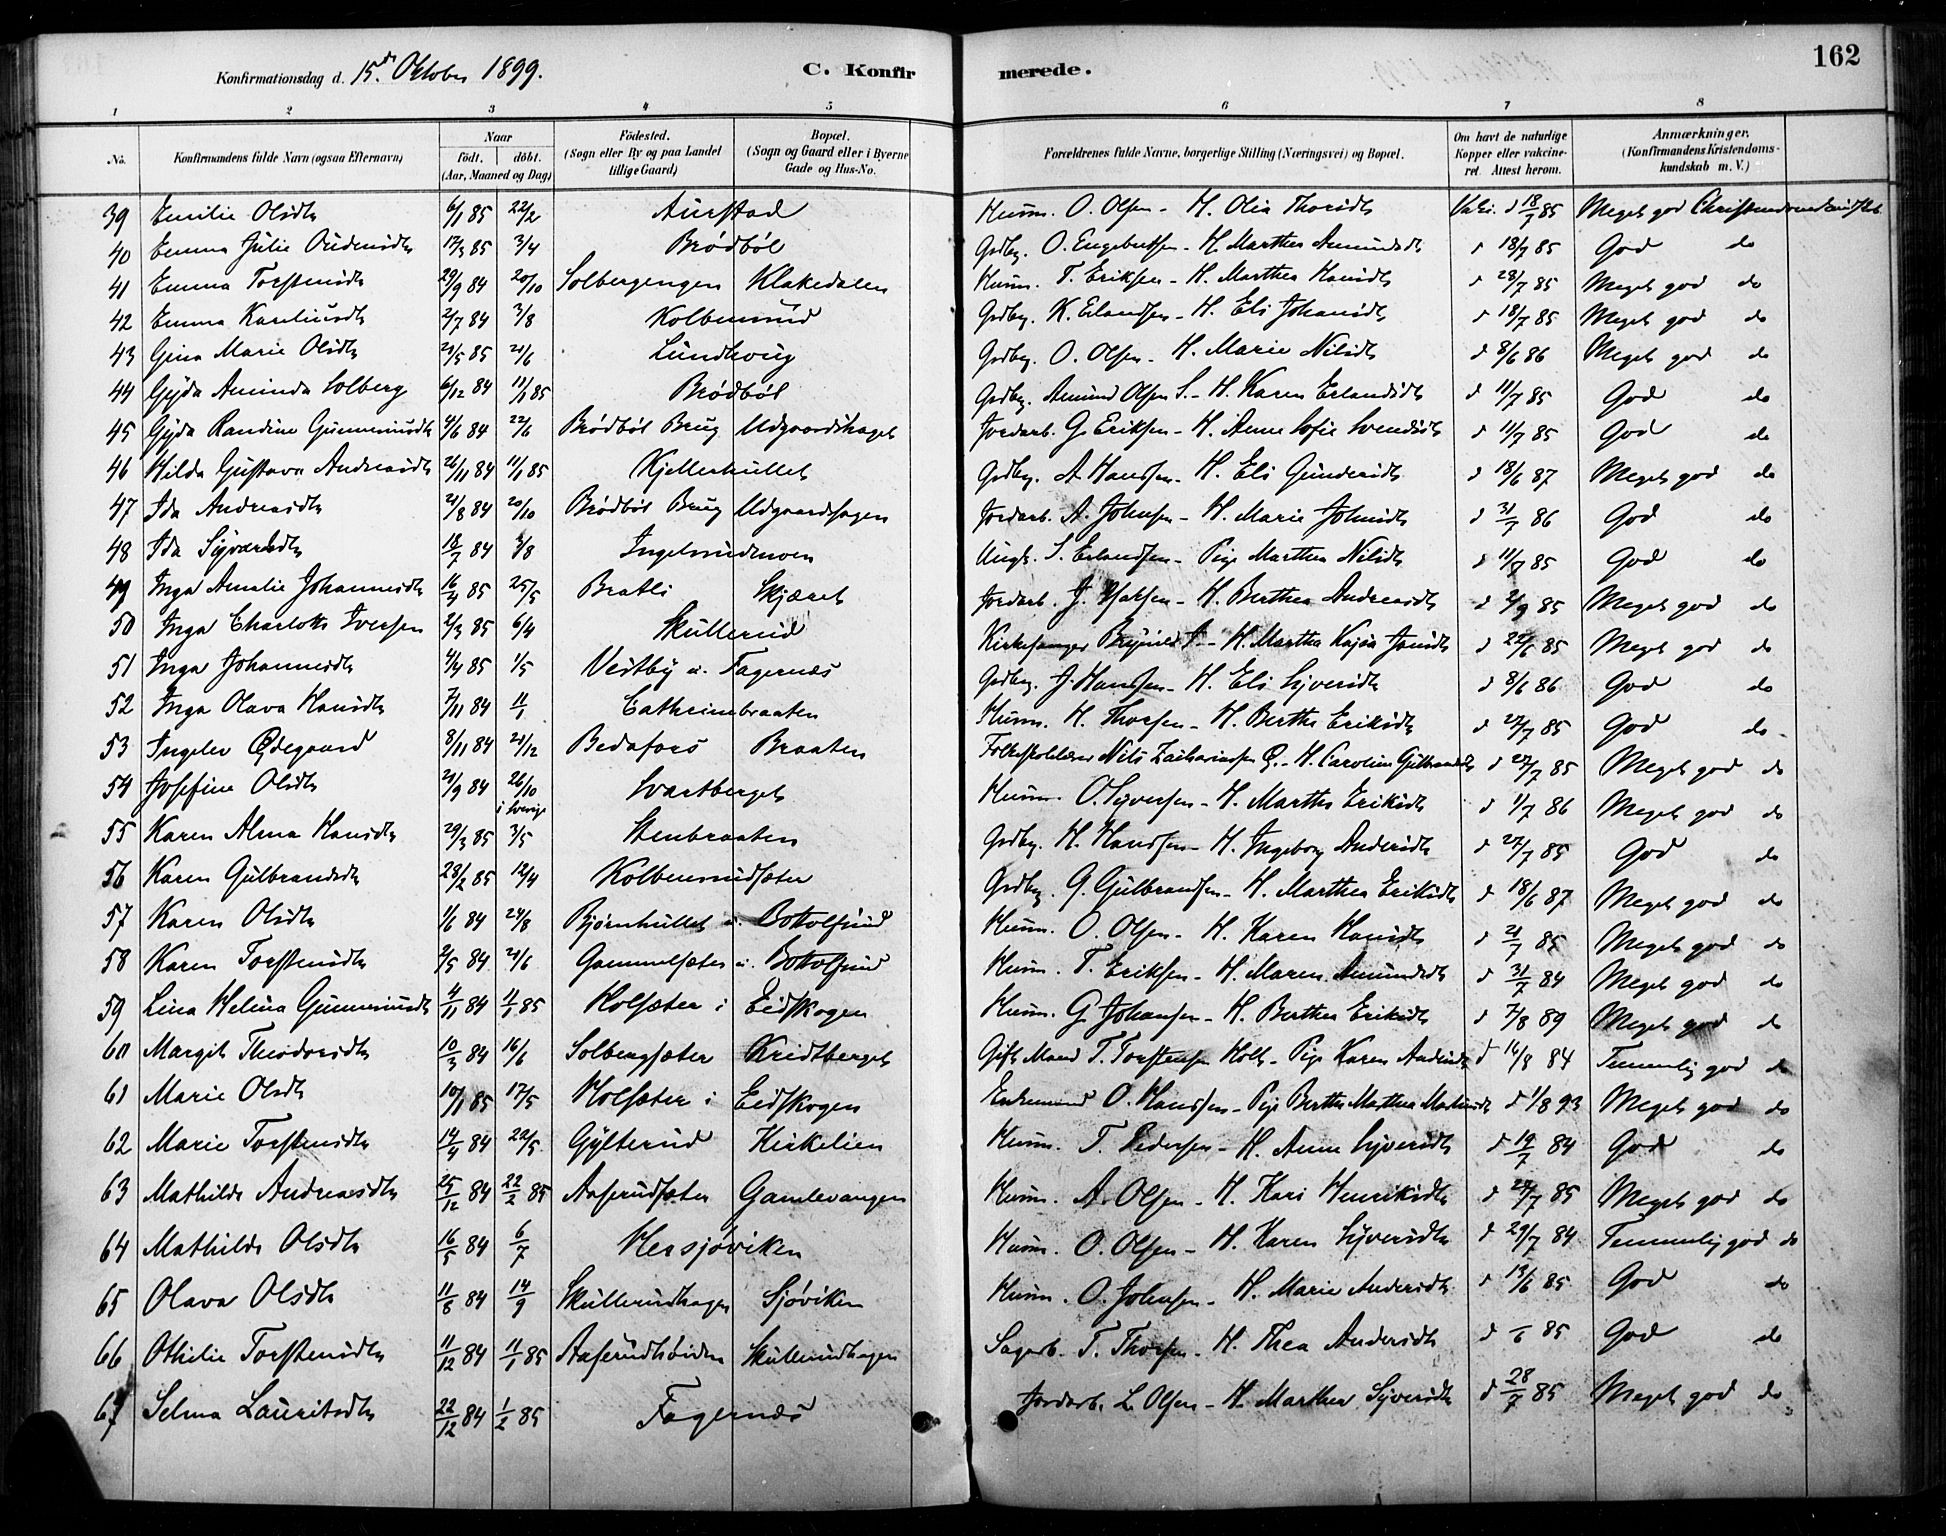 162
Konfirmationsdag d. 15de Oktober 1899. C. Konfirmerede.
1 2 3 4 5 6 7 8
No. Konfirmandens fulde Navn (ogsaa Efternavn) Naar födt. döbt. (Aar, Maaned og Dag) Födested. (Sogn eller By og paa Landet tillige Gaard) Bopæl. (Sogn og Gaard eller i Byerne Gade og Hus-No. Forældrenes fulde Navne, borgerlige Stilling (Næringsvei) og Bopæl. Om havt de naturlige Kopper eller vakcineret. Attest herom. Anmærkninger. (Konfirmandens Kristendomskundskab m. V.)
39 Emilie Olsdtr 6/1 85 22/2 Aurstad Husm. O. Olsen - H. Olia Thorsdtr Vakc. d 18/7 85 Meget god Christendomskundskab
40 Emma Julie Oudensdtr 17/3 85 3/4 Brødbøl Grdbr. O. Engebretsen - H. Marthea Amundsdtr d 18/7 85 God do
41 Emma Torstensdtr 29/9 84 20/10 Solbergengen Klakedalen Husm. T. Eriksen - H. Marthea Hansdtr d 28/7 85 Meget god do
42 Emma Kareliusdtr 2/7 84 3/8 Kolbenrud Grdbr. K. Erlandsen - H. Eli Johansdtr d 18/7 85 Meget god do
43 Gina Marie Olsdtr 21/5 85 21/6 Lundhoug Grdbr. O. Olsen - H. Marie Nilsdtr d 8/6 86 Meget god do
44 Gyda Aminda Solberg 6/12 84 11/1 85 Brødbøl Grdbr. Amund Olsen S. - H. Karen Erlandsdtr d 11/7 85 God do
45 Gyda Randine Gunneriusdtr 4/6 84 22/6 Brødbøl Brug Udgaardshaget Jordarb. G. Eriksen - H. Anne Sofie Svendsdtr d 11/7 85 God do
46 Hilda Gustava Andreasdtr 26/11 84 11/1 85 Kjellerhullet Grdbr. A. Hanssen - H. Eli Gundersdtr d 18/6 87 Meget god do
47 Ida Andreasdtr 21/8 84 20/10 Brødbøl Brug Udgaardshagen Jordarb. A. Johnsen - H. Marie Johnsdtr d 31/7 86 God do
48 Ida Syversdtr 18/7 84 3/8 Ingelsrudmoen Ungk. S. Erlandsen - Pige Marthea Nilsdtr d 11/7 85 God do
49 Inga Amalie Johannesdtr 16/4 85 25/5 Bratli Skjæret Jordarb. J. Isaksen - H. Berthea Andreasdtr d 2/9 85 Meget god do
50 Inga Charlotte Iversen 2/3 85 6/4 Skullerud Kirkesanger Brynild I. - H. Martha Kajsa Jonsdtr d 22/6 85 Meget god do
51 Inga Johannesdtr 4/4 85 1/5 Vestby u. Fagernæs Grdbr. J. Hanssen - H. Eli Syversdtr d 8/6 86 God do
52 Inga Olava Hansdtr 7/11 84 11/1 Cathrinebraaten Husm. H. Thorsen - H. Berthe Eriksdtr d 27/7 85 God do
53 Ingelev Ødegaard 8/11 84 21/12 Bedafors Braaten Folkeskolelærer Nils Zachariassen Ø. - H. Caroline Gulbrandsdtr d 27/7 85 Meget god do
54 Josefine Olsdtr 21/9 84 26/10 i Sverige Svartberget Husm. O. Syversen - H. Marthe Eriksdtr d 1/7 86 Meget god do
55 Karen Alma Hansdtr 29/3 85 3/5 Stenbraaten Grdbr. H. Hanssen - H. Ingeborg Andersdtr d 27/7 85 God do
56 Karen Gulbrandsdtr 28/2 85 12/4 Kolbenrudsæter Grdbr. G. Gulbrandsen - H. Marthea Eriksdtr d 18/6 87 Meget god do
57 Karen Olsdtr 1/6 84 24/8 Bjørnhullet u. Bottolfsrud Husm. O. Olsen - H. Karen Hansdtr d 21/7 85 Meget god do
58 Karen Torstensdtr 2/5 84 21/6 Gammelsæter u. Bottolfsrud Husm. T. Eriksen - H. Maren Amundsdtr d 31/7 84 Meget god do
59 Lina Helina Gunneriusdtr 4/11 84 11/1 85 Holsæter i Eidskogen Husm. G. Johansen - H. Berthea Eriksdtr d 7/8 89 Meget god do
60 Margit Theodorsdtr 10/3 84 16/6 Solbergsæter Kridtberget Gift Mand T. Torstensen Holt - Pige Karen Andersdtr d 16/8 84 Temmelig god do
61 Marie Olsdtr 10/1 85 17/5 Holsæter i Eidskogen Enkemand O. Hanssen - Pige Berthe Marthea Mathisdtr d 1/8 93 Meget god do
62 Marie Torstensdtr 14/4 84 22/5 Gylterud Kirkelien Husm. T. Pedersen - H. Anne Syversdtr d 19/7 84 God do
63 Mathilde Andreasdtr 25/12 84 22/2 85 Aaserudsæter Gamlevangen Husm. A. Olsen - H. Kari Henriksdtr d 28/7 85 Meget god do
64 Mathilde Olsdtr 16/5 84 6/7 Hersjøviken Husm. O. Olsen - H. Karen Syversdtr d 29/7 84 Temmelig god do
65 Olava Olsdtr 11/8 84 14/9 Skullerudhagen Sjøviken Husm. O. Johnsen - H. Marie Andersdtr d 13/6 85 God do
66 Othilie Torstensdtr 11/12 84 11/1 85 Aaserudhøiden Skullerudhagen Sagarb. T. Thorsen - H. Thea Andersdtr d /6 85 God do
67 Selma Lauritsdtr 22/12 84 1/2 85 Fagernæs Jordarb. L. Olsen - H. Marthea Syversdtr d 28/7 85 Meget god do